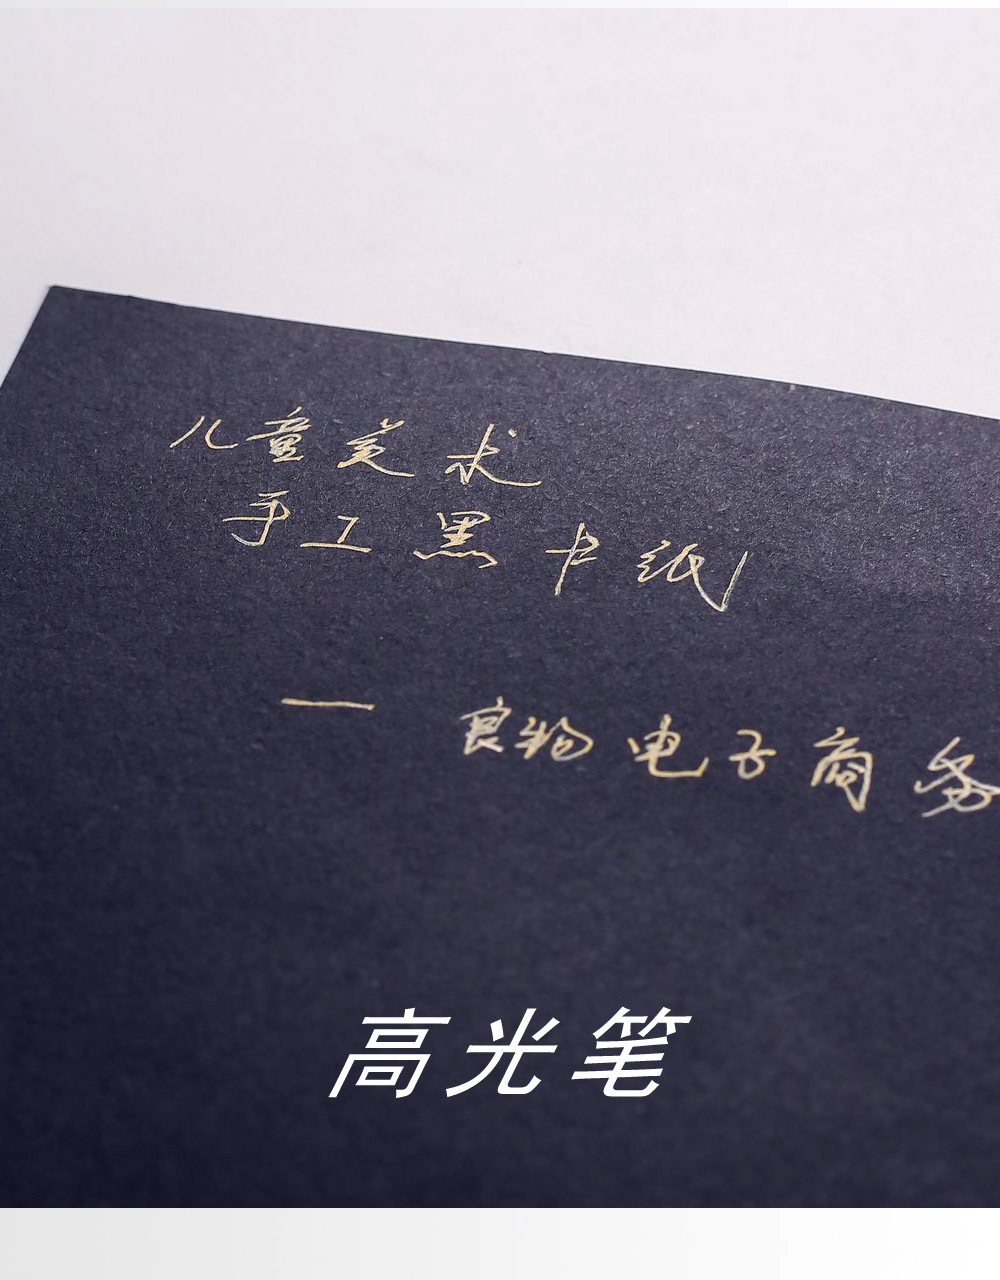 儿童美术
手工黑卡纸
— 良物电子商务
高光笔